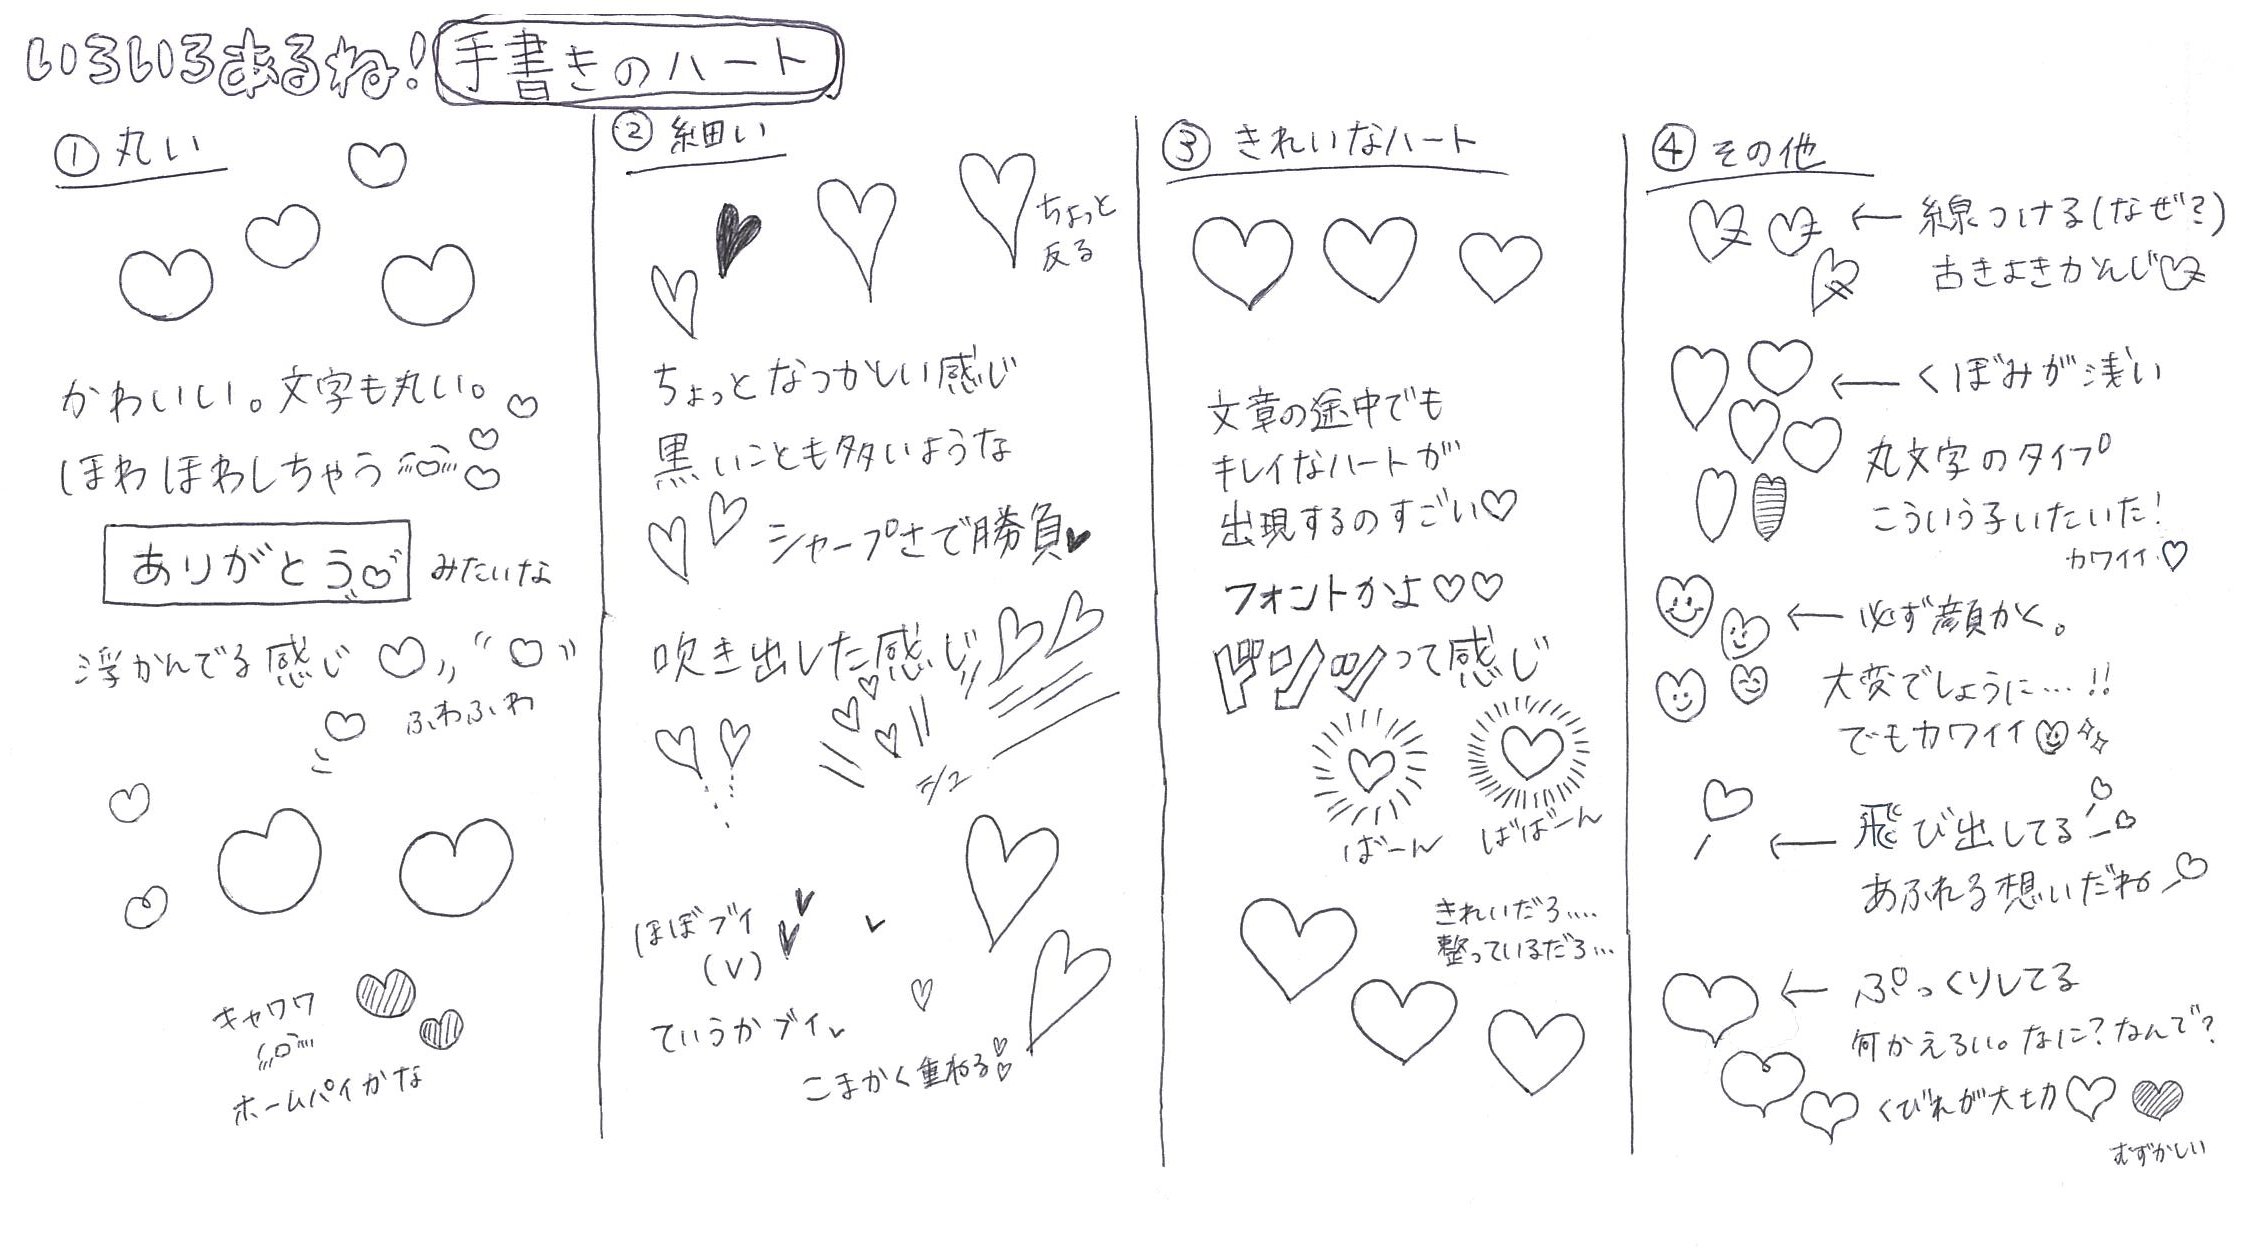 いろいろあるね！手書きのハート
①丸い
かわいい。文字も丸い。
ほわほわしちゃう
ありがとう♡
みたいな
浮かんでる感じ
ふわふわ
キャワワ
ホームパイかな
②細い
ちょっと
反る
ちょっとなつかしい感じ
黒いことも多いような
シャープさで勝負♥
吹き出した感じ
ほぼブイ
(V)
ていうかブイ
こまかく重ねる
③きれいなハート
文章の途中でも
キレイなハートが
出現するのすごい♡
フォントかよ♡♡
ドンッって感じ
ばーん
ばばーん
きれいだろ....
整っているだろ...
④その他
←線つける(なぜ?)
古きよきかんじ
←くぼみが浅い
丸文字のタイプ
こういう子いたいた!
カワイイ♡
←必ず顔かく。
大変でしょうに...!!
でもカワイイ
←飛び出してる
あふれる想いだね
←ぷっくりしてる
何かえろい。なに?なんで?
くびれが大切♡
むずかしい